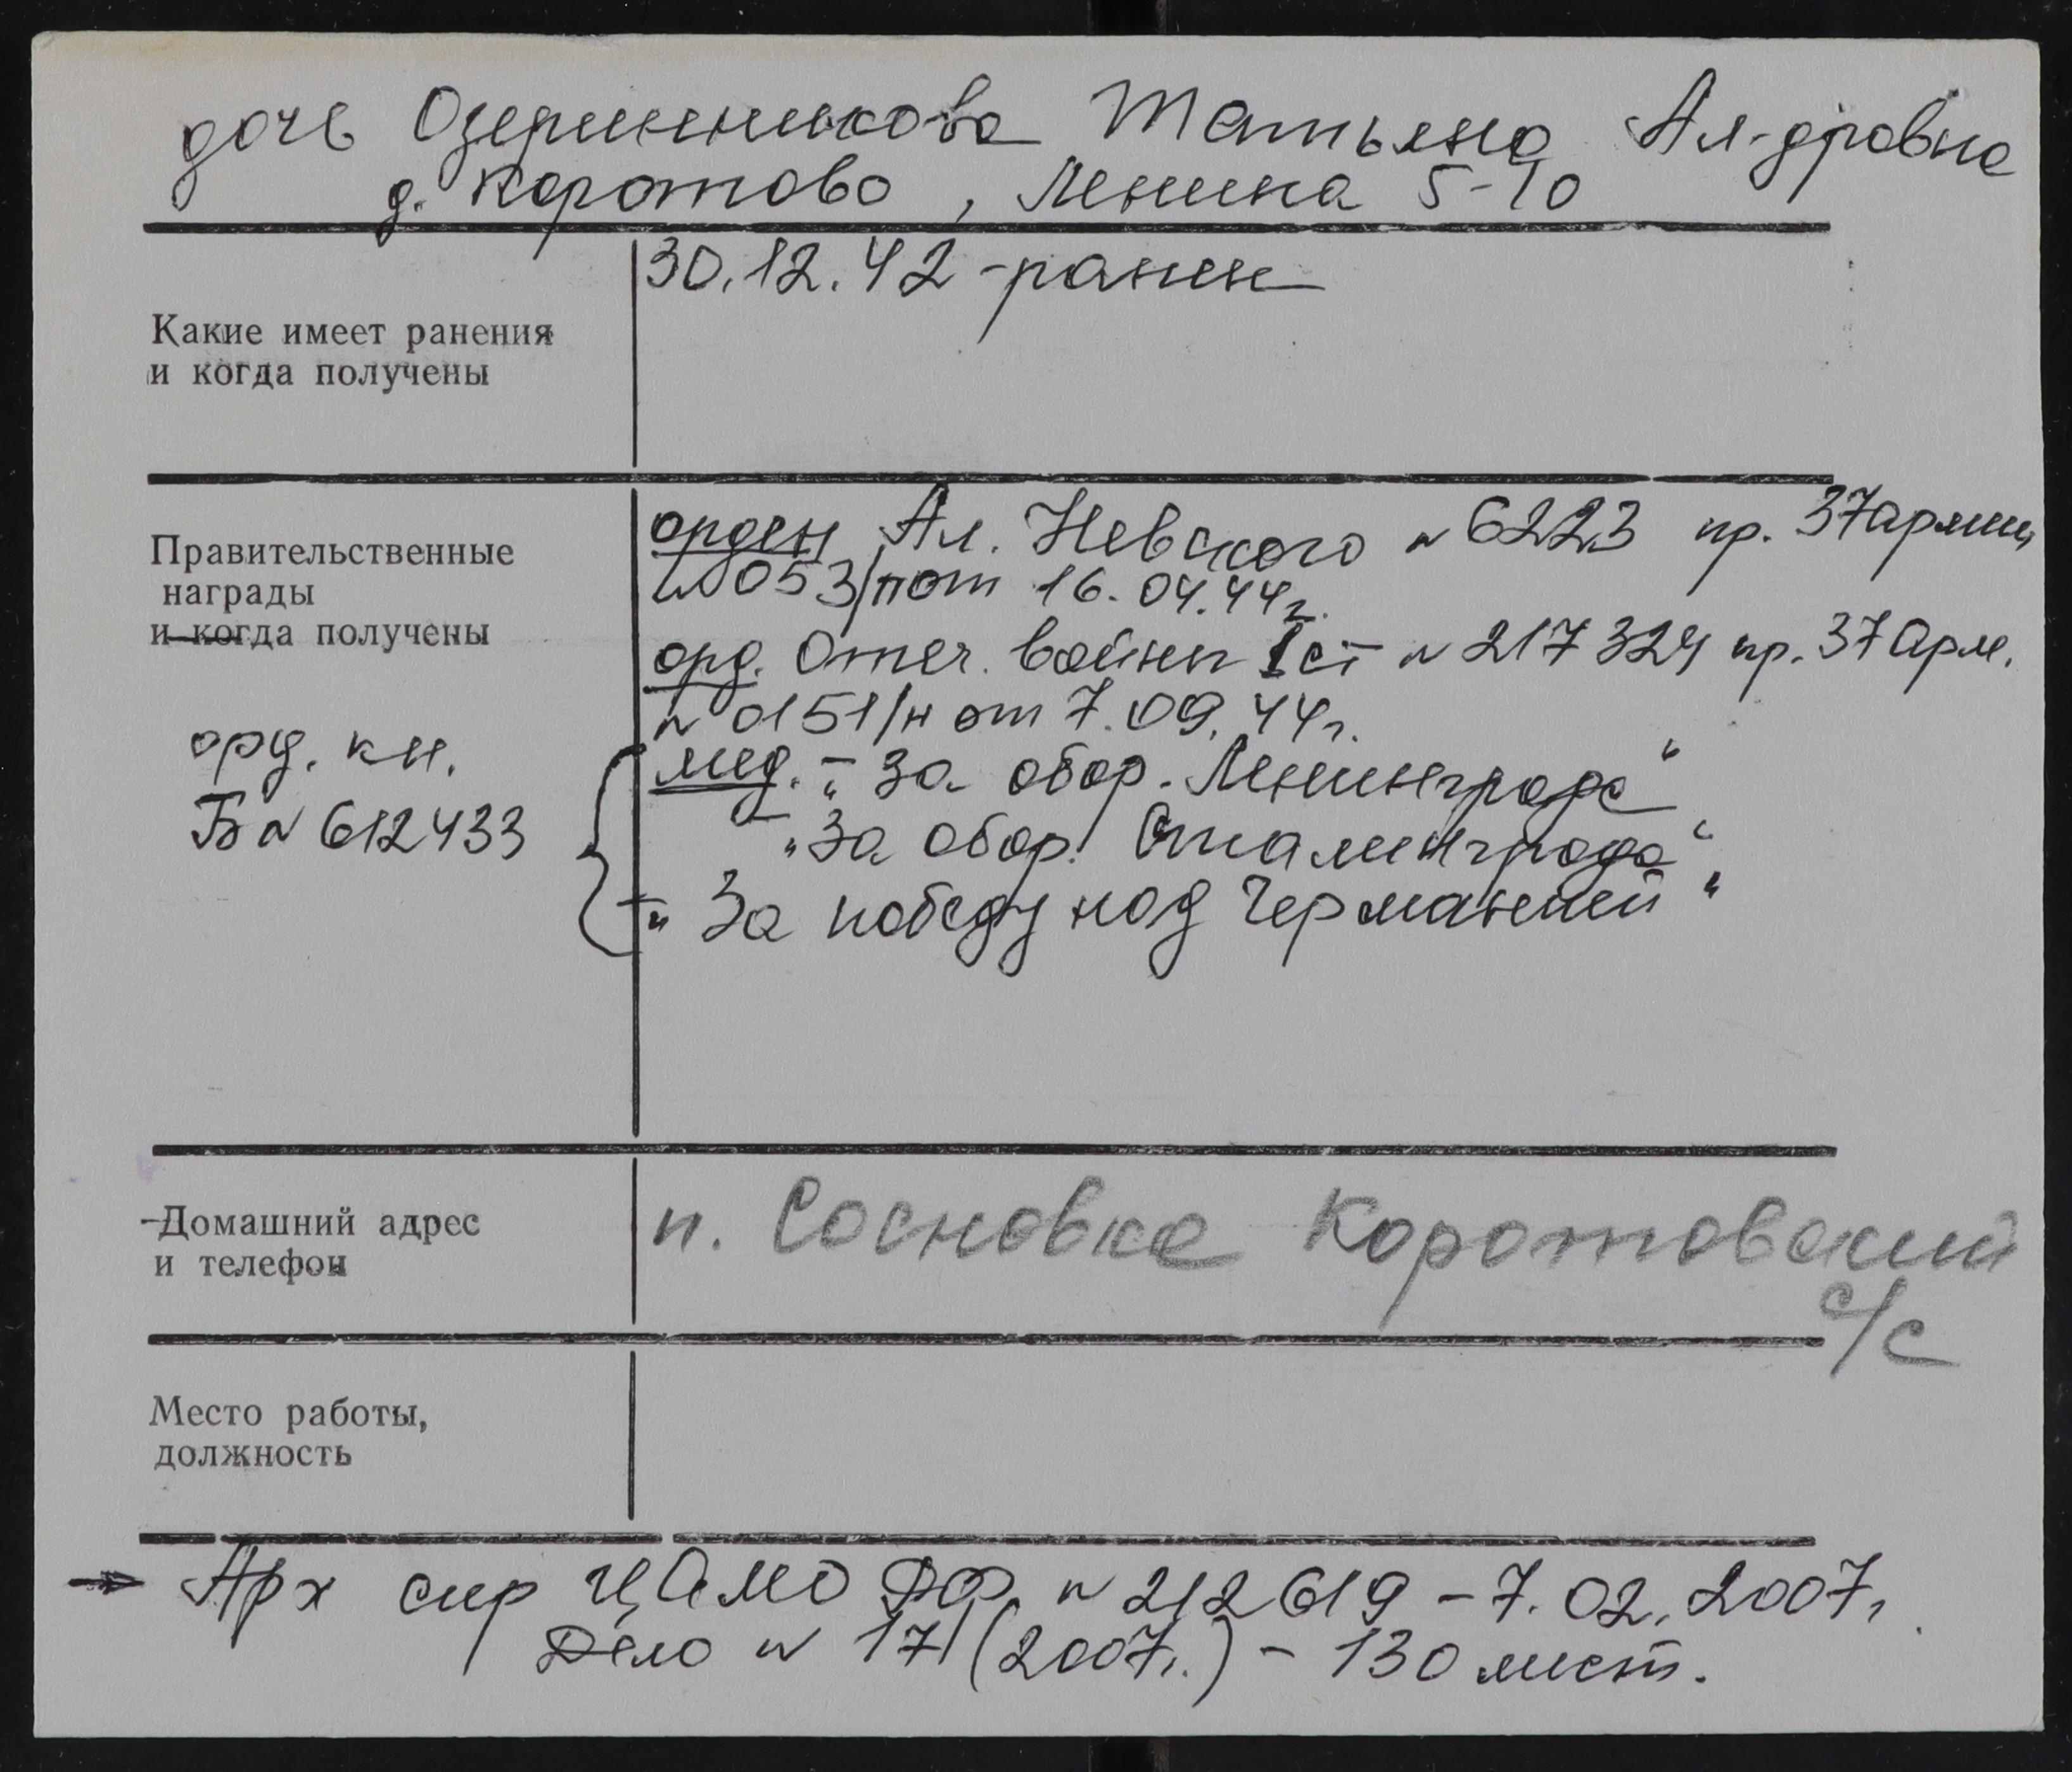 дочь Озеринникова Татьяна Ал-дровна
д. Коротово, Ленина 5-10
30.12.42 - ранен
Какие имеет ранения
и когда получены
орден Ал. Невского № 6223 пр. 37 армии
№ 053/п от 16.04.44 г.
Правительственные
награды
и когда получены
орд. Отеч. войны I ст № 217324 пр. 37 Арм.
№ 0151/н от 7.09.44 г.
орд. кн.
Б № 612433
мед. - "За обор. Ленинграда"
- "За обор. Сталинграда"
- "За победу над Германией"
Домашний адрес
и телефон
п. Сосновка Коротовский
с/с
Место работы,
должность
→ Арх спр ЦАМО РФ № 212619 - 7.02.2007 г.
Дело № 17 (2007 г.) - 130 лист.